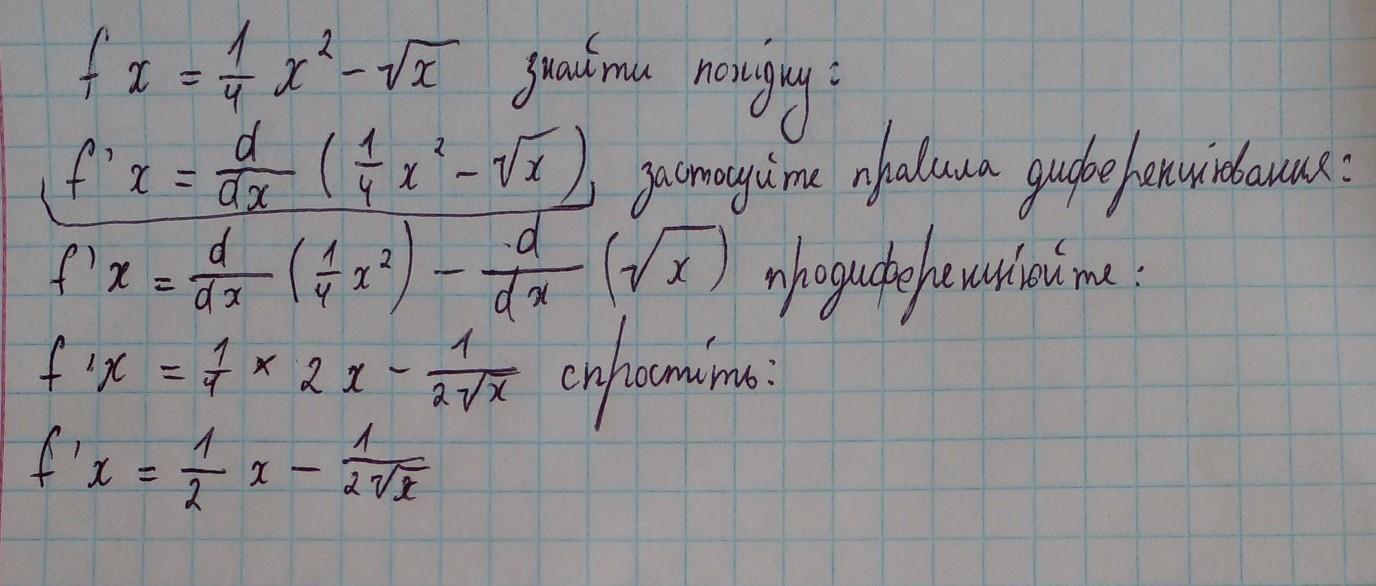 f x = 1/4 x² - √x знайти похідну:
f' x = d/dx (1/4 x² - √x), застосуйте правила диференціювання:
f' x = d/dx (1/4 x²) - d/dx (√x) продиференціюйте:
f' x = 1/4 × 2 x - 1/2√x спростіть:
f' x = 1/2 x - 1/2√x